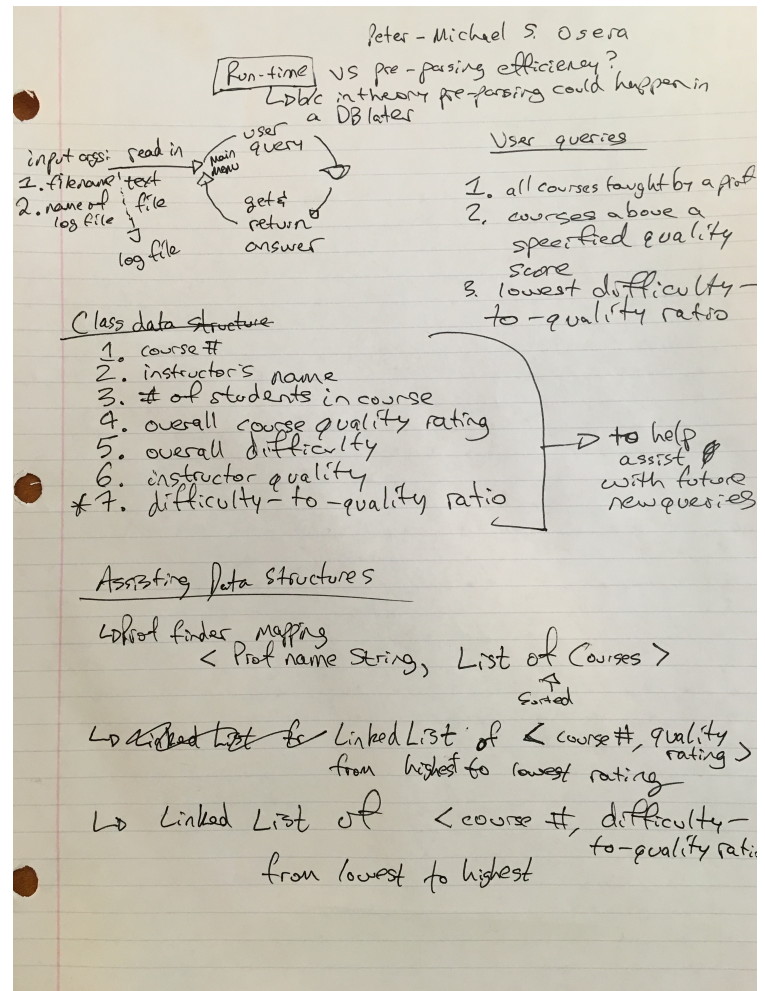 Peter-Michael S. Osera
Run-time vs pre-parsing efficiency?
↳ b/c in theory pre-parsing could happen in
a DB later
input args: read in
1. filename text
2. name of file
log file
log file
Main
menu
user
query
get &
return
answer
User queries
1. all courses taught by a prof
2. courses above a
specified quality
score
3. lowest difficulty-
to-quality ratio
Class data structure
1. course #
2. instructor's name
3. # of students in course
4. overall course quality rating
5. overall difficulty
6. instructor quality
* 7. difficulty-to-quality ratio
to help
assist
with future
new queries
Assisting Data Structures
↳ Prof finder mapping
< Prof name String, List of Courses >
Sorted
↳ Linked List for Linked List of < course #, quality
rating >
from highest to lowest rating
↳ Linked List of < course #, difficulty-
to-quality ratio
from lowest to highest